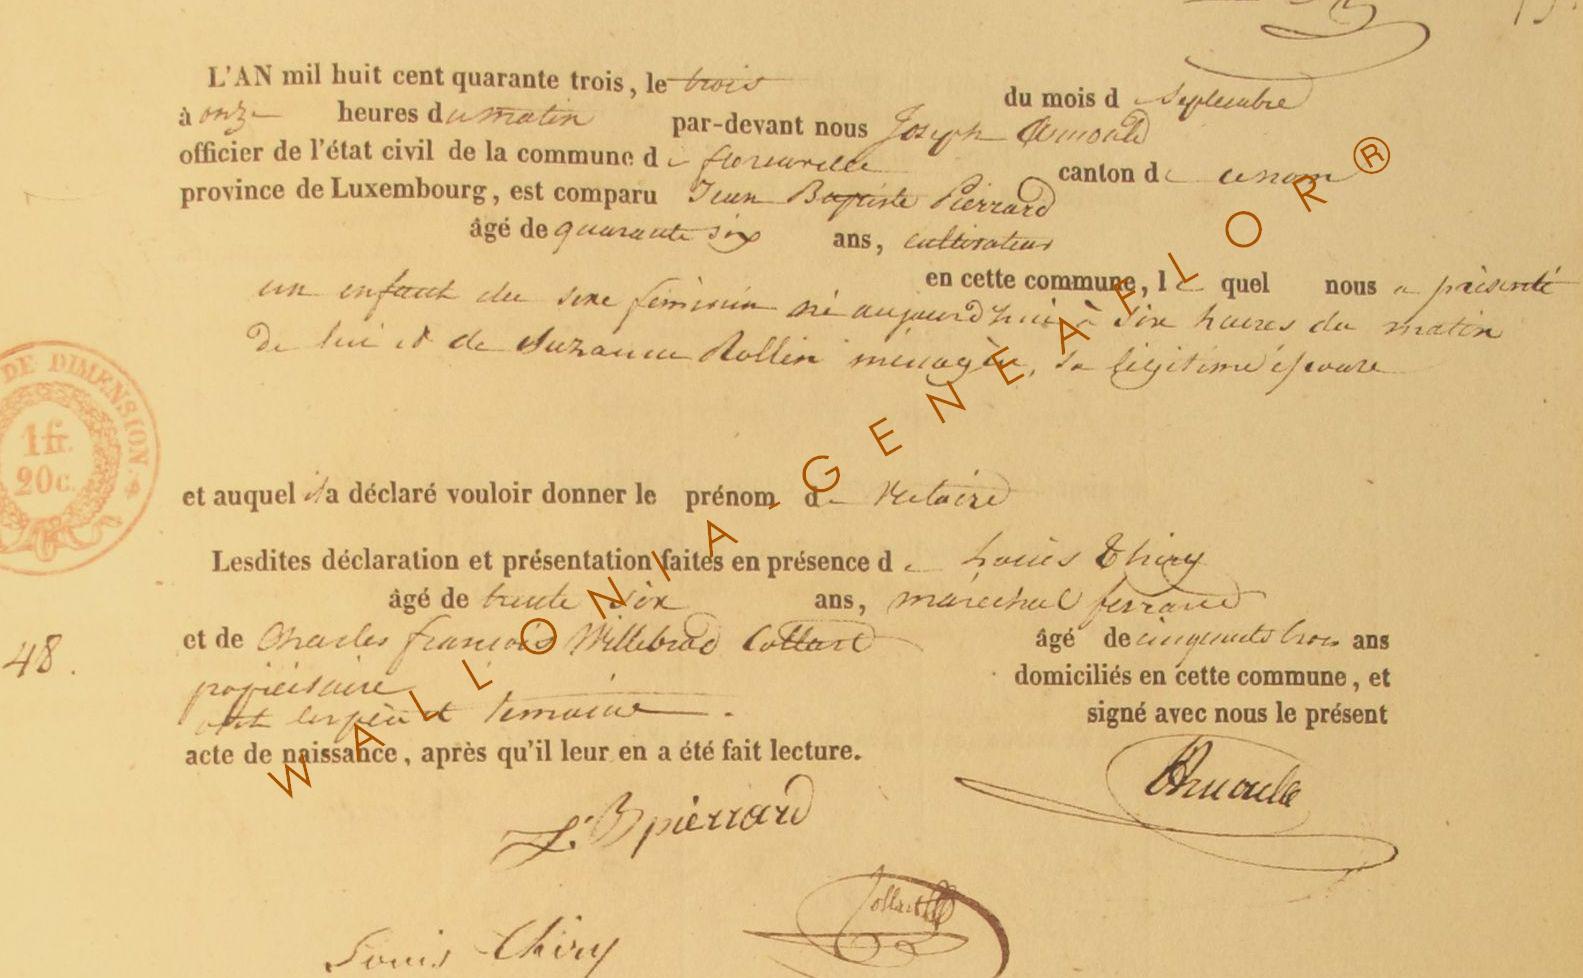 L'AN mil huit cent quarante trois, le trois du mois de Septembre
à onze heures du matin par-devant nous Joseph Arnould
officier de l'état civil de la commune de florenville canton de ce nom
province de Luxembourg, est comparu Jean Baptiste Pierrard
âgé de quarante six ans, cultivateur
en cette commune, le quel nous a présenté
un enfant du sexe féminin né aujourd'hui à six heures du matin
de lui et de Suzanne Rollin ménagère, sa légitime épouse
DE DIMENSION.
1 fr.
20c.
et auquel il a déclaré vouloir donner le prénom de
Lesdites déclaration et présentation faites en présence de Louis Thiry
âgé de trente six ans, maréchal ferrand
et de Charles françois Willebrod Collart âgé de cinquante trois ans
48.
propriétaire domiciliés en cette commune, et
ont les père et témoins signé avec nous le présent
acte de naissance, après qu'il leur en a été fait lecture.
Arnould
J. B pierrard
Collart
Louis Thiry
WALLONIA-GENEAFLOR®